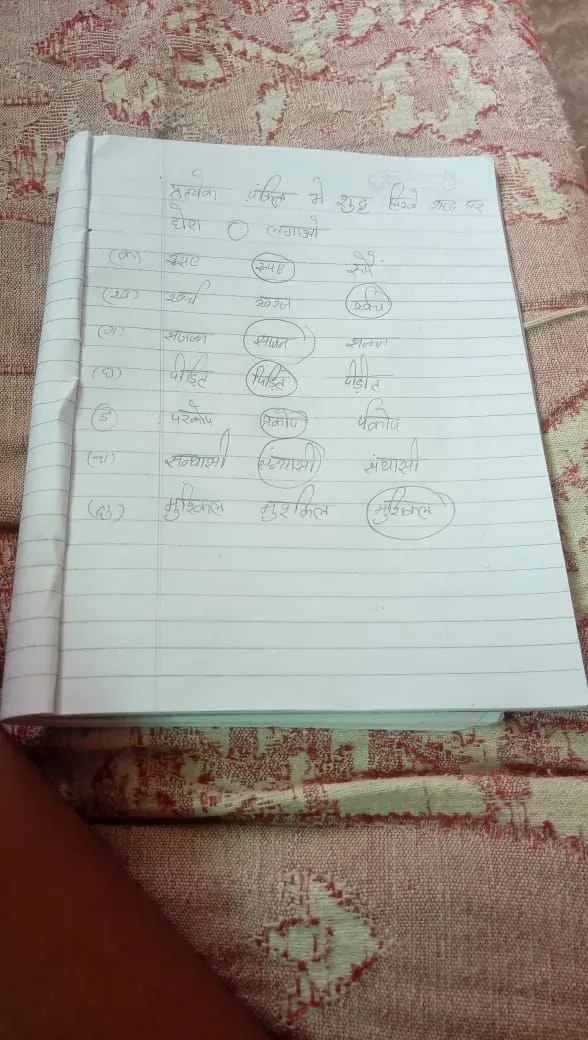 प्रत्येक पंक्ति मे शुद्ध लिखे शब्द पर
घेरा ○ लगाओ
(क) रूपए रुपए रुपै
(ख) खर्च खरज
(ग)
(घ) पीड़ित पिड़ित पीड़ीत
ङ परकोप प्रकोप र्पकोप
(च) सन्यासी संन्यासी संयासी
(छ) मुश्किल मुशकिल मुश्किल